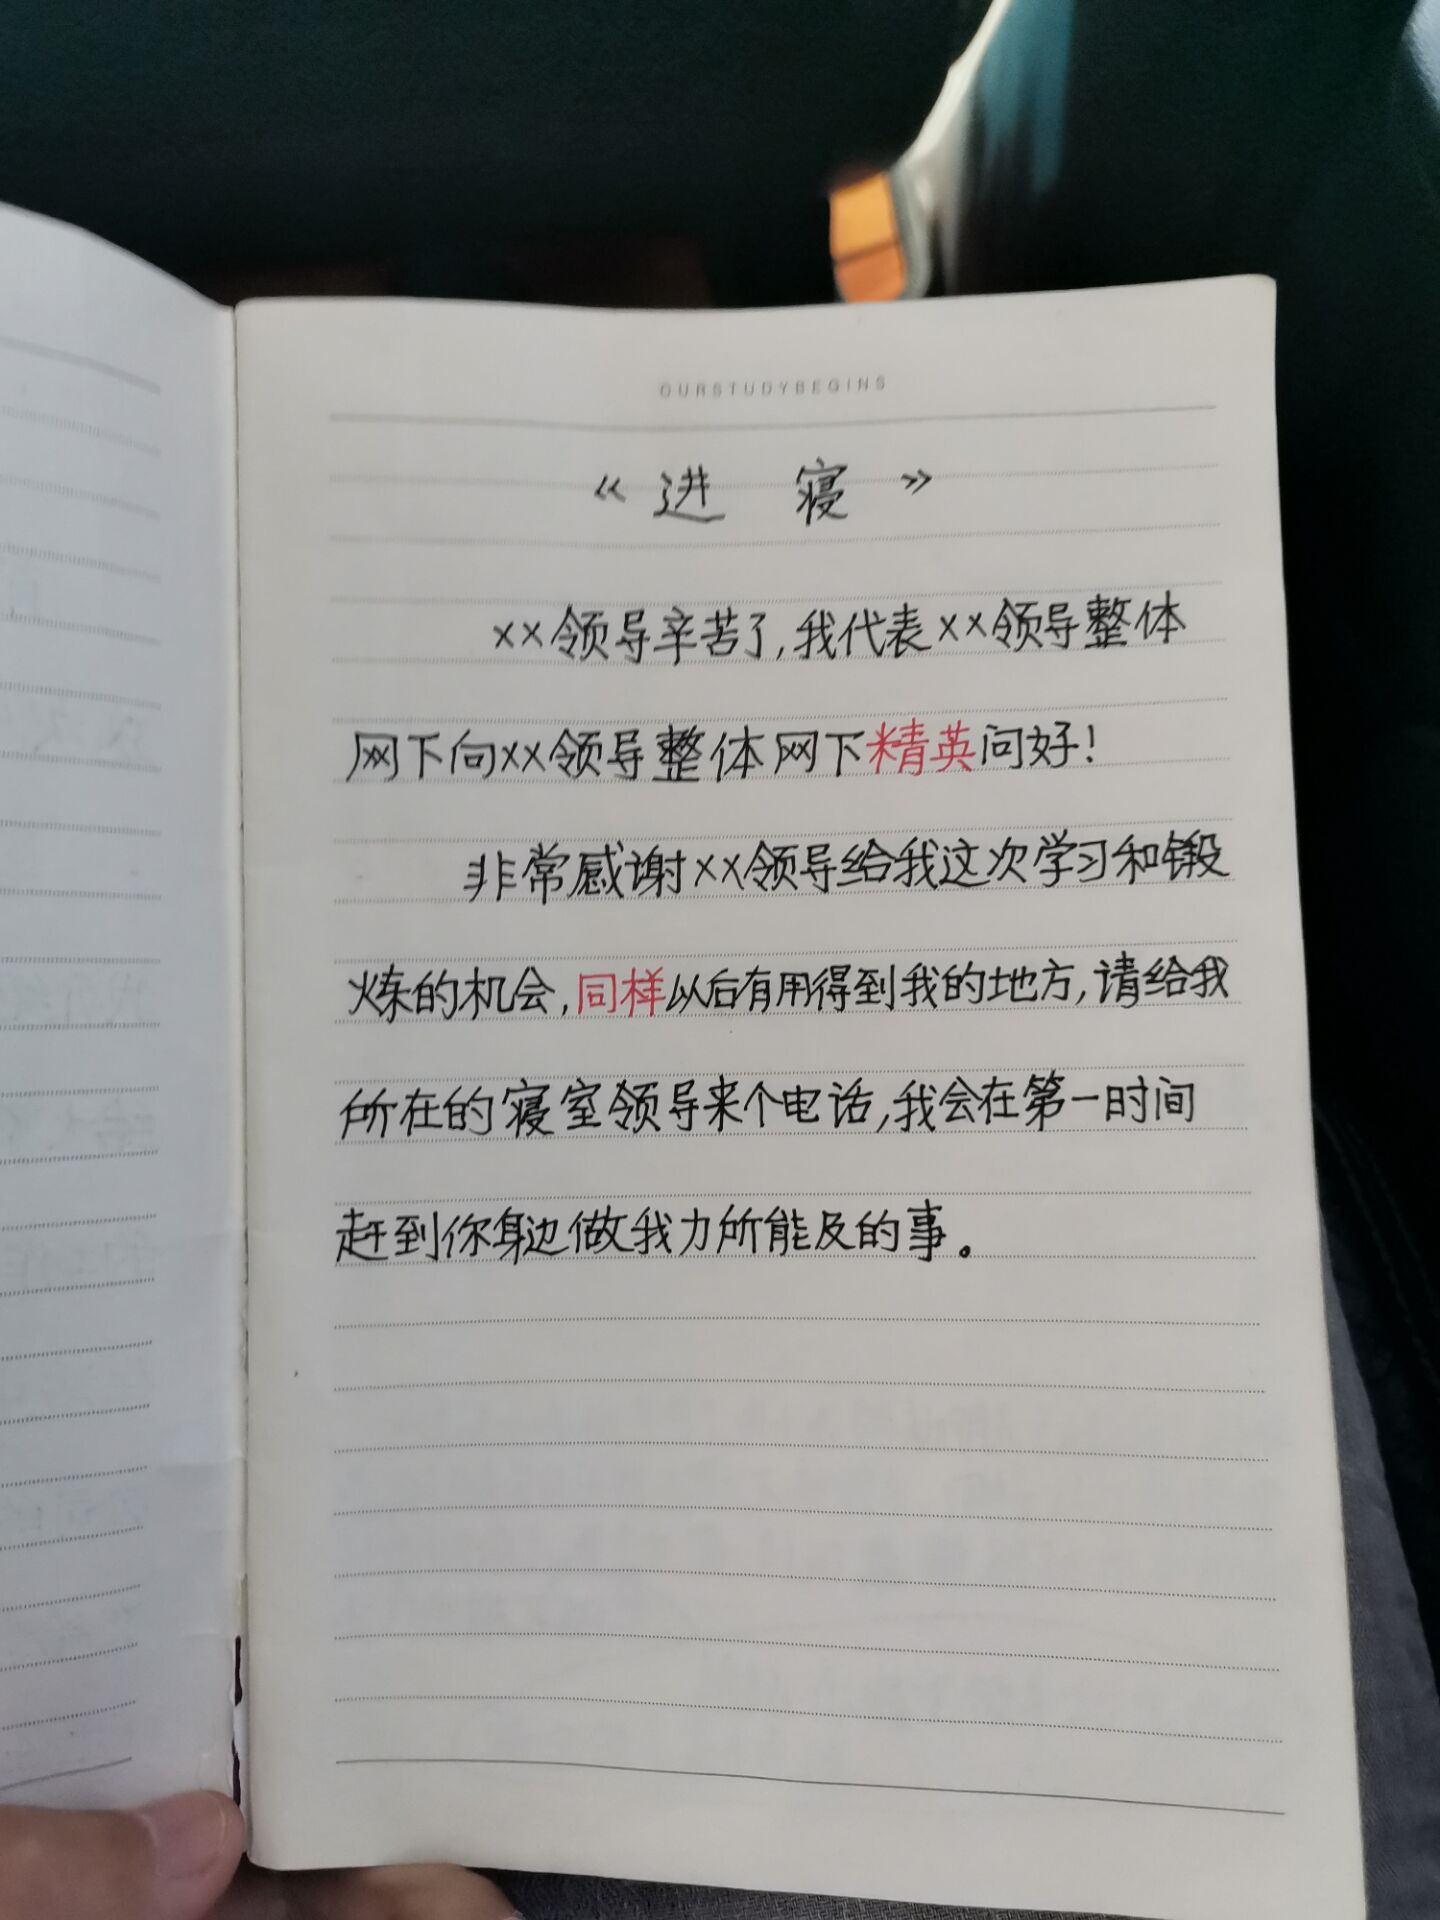 OURSTUDYBEGINS
《进 寝》
××领导辛苦了,我代表××领导整体
网下向××领导整体网下精英问好!
非常感谢××领导给我这次学习和锻
炼的机会,同样以后有用得到我的地方,请给我
所在的寝室领导来个电话,我会在第一时间
赶到你身边做我力所能及的事。